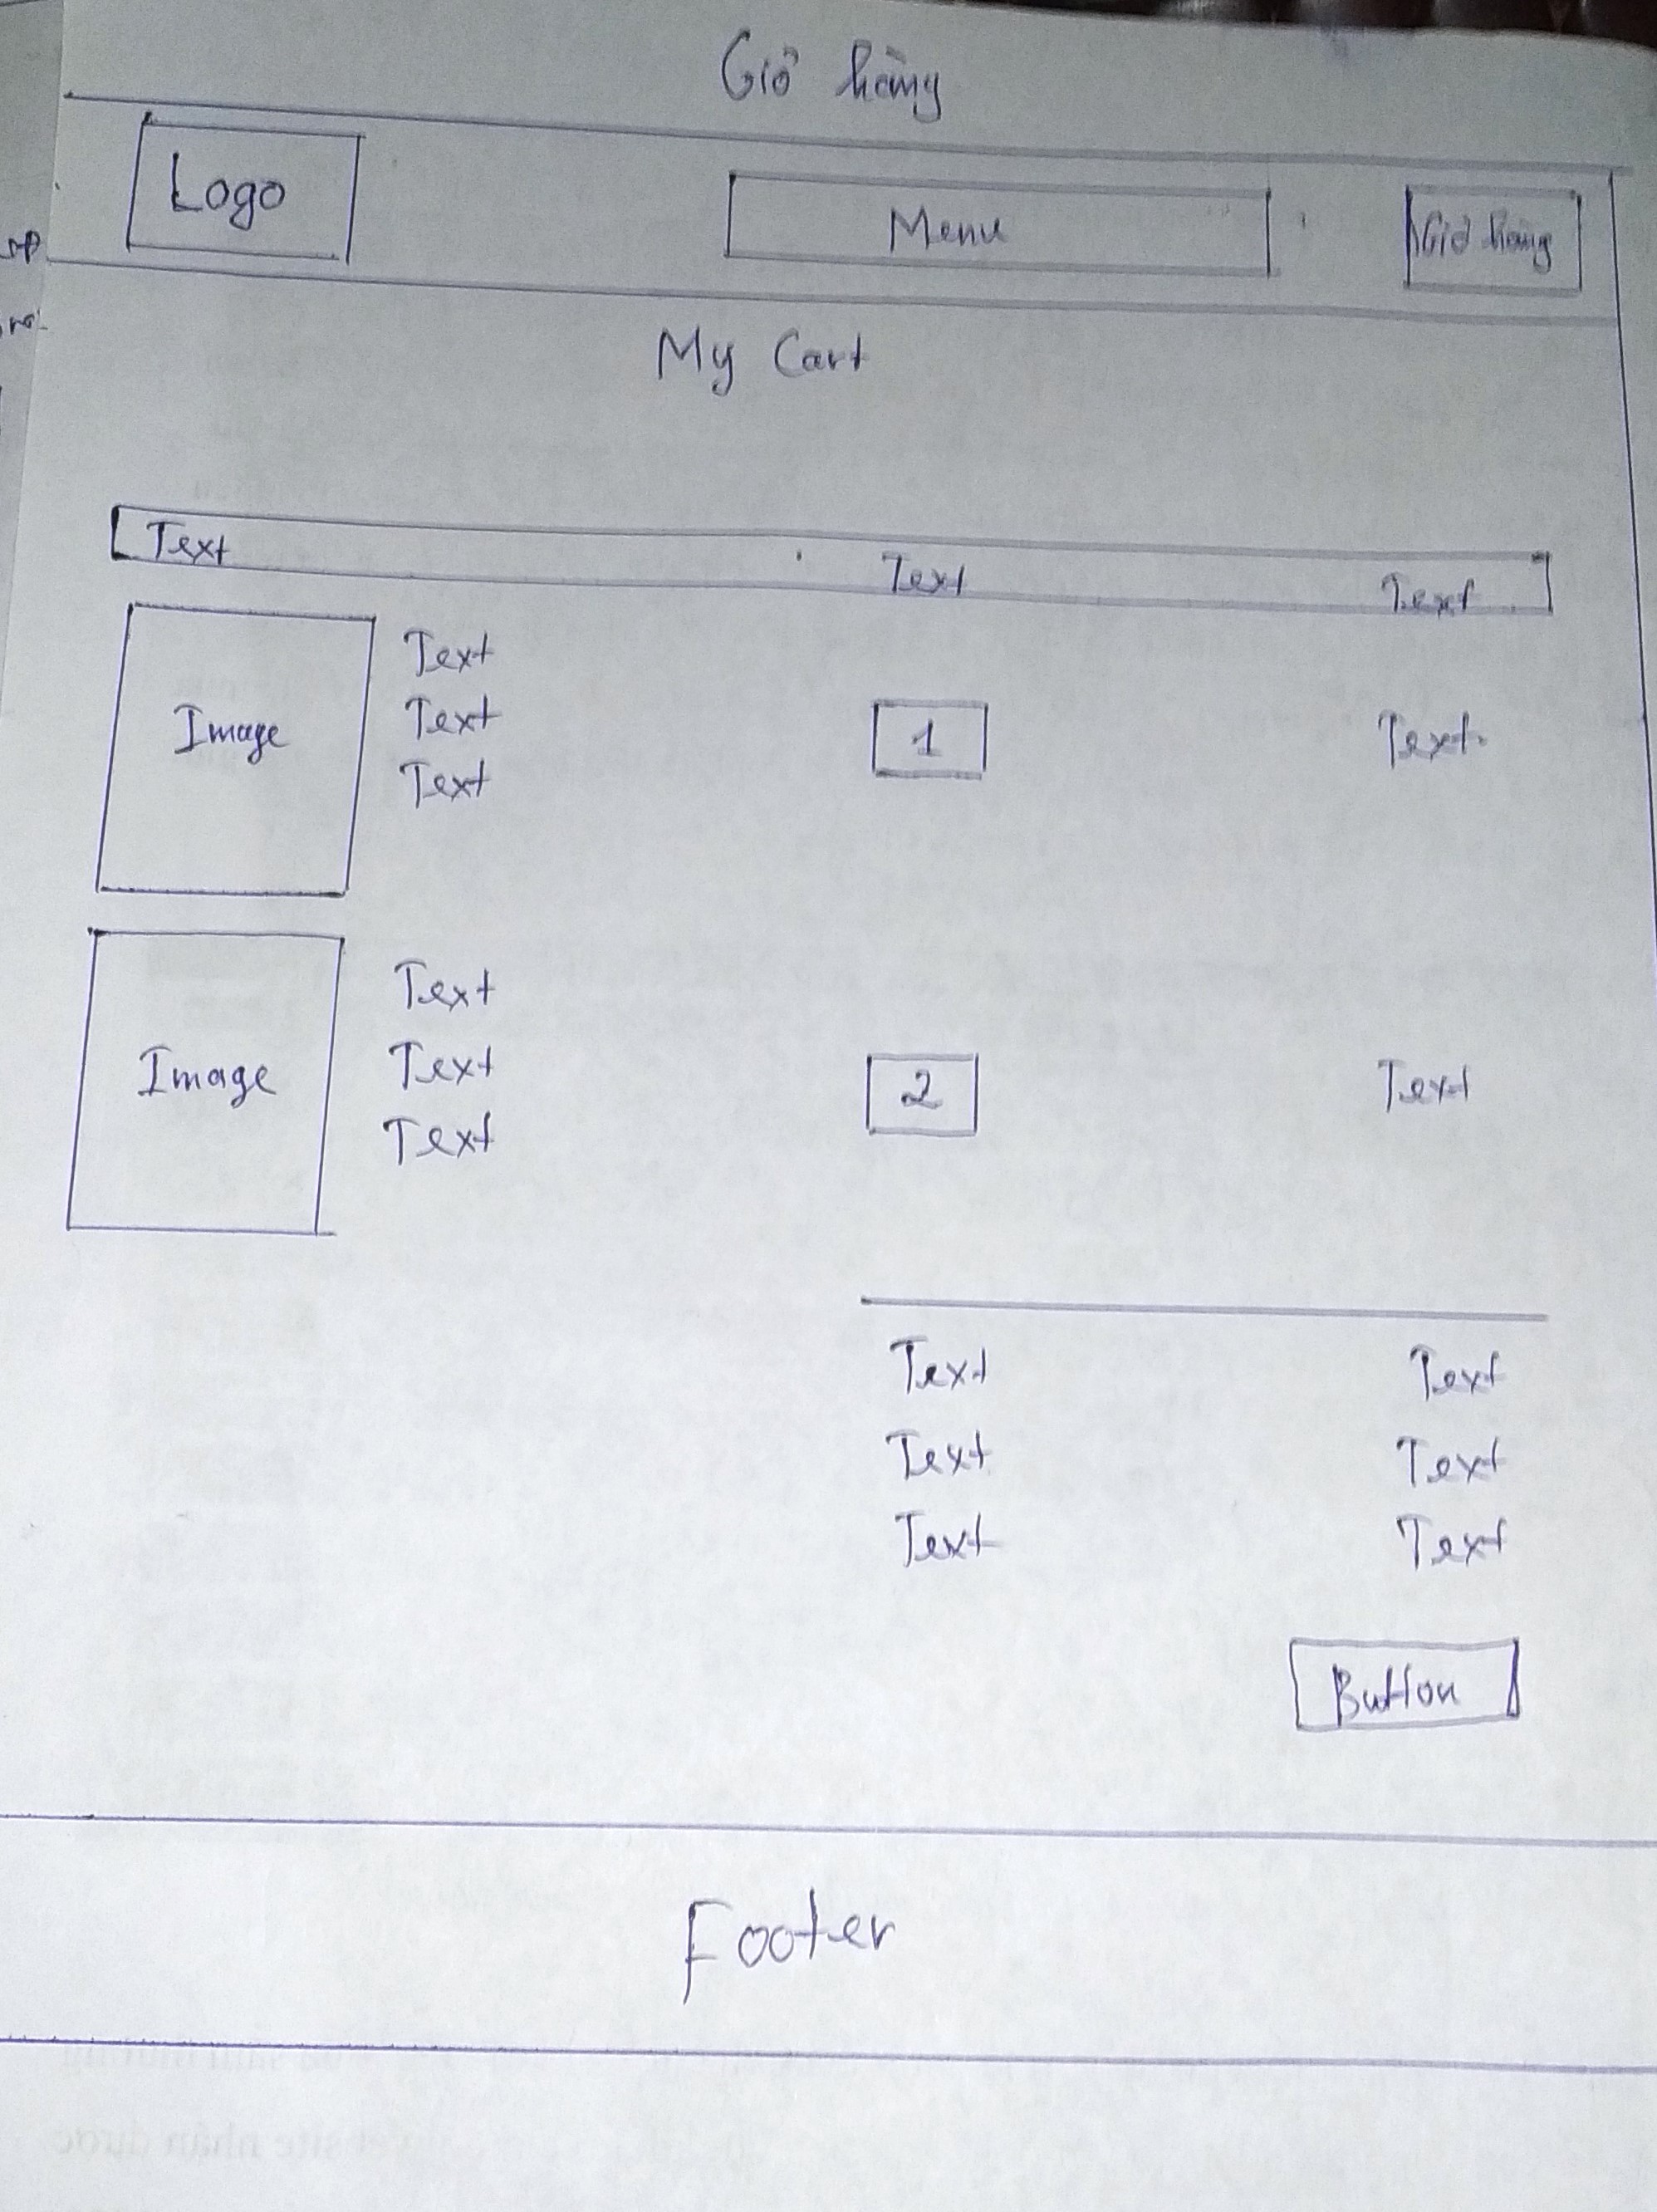 Giỏ hàng
Logo
Menu
Giỏ hàng
My Cart
Text Text Text
Image
Text
Text
Text
1
Text
Image
Text
Text
Text
2
Text
Text Text
Text Text
Text Text
Button
Footer